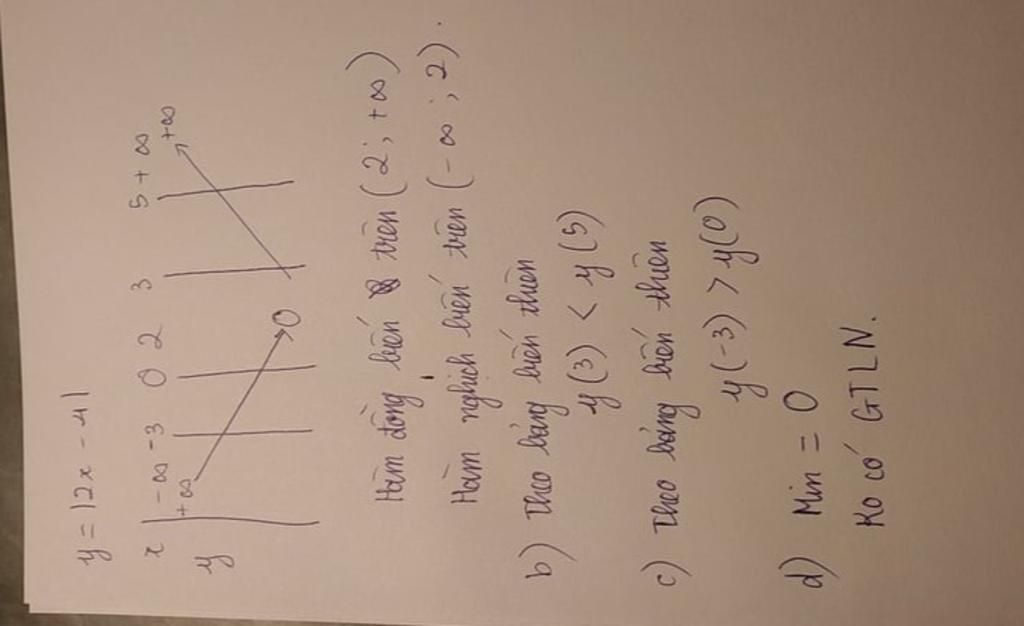 y = |2x - 4|
x -∞ -3 0 2 3 5 +∞
y +∞ 0 +∞
Hàm đồng biến trên (2; +∞)
Hàm nghịch biến trên (-∞; 2).
b) Theo bảng biến thiên
y(3) < y(5)
c) Theo bảng biến thiên
y(-3) > y(0)
d) Min = 0
Ko có GTLN.